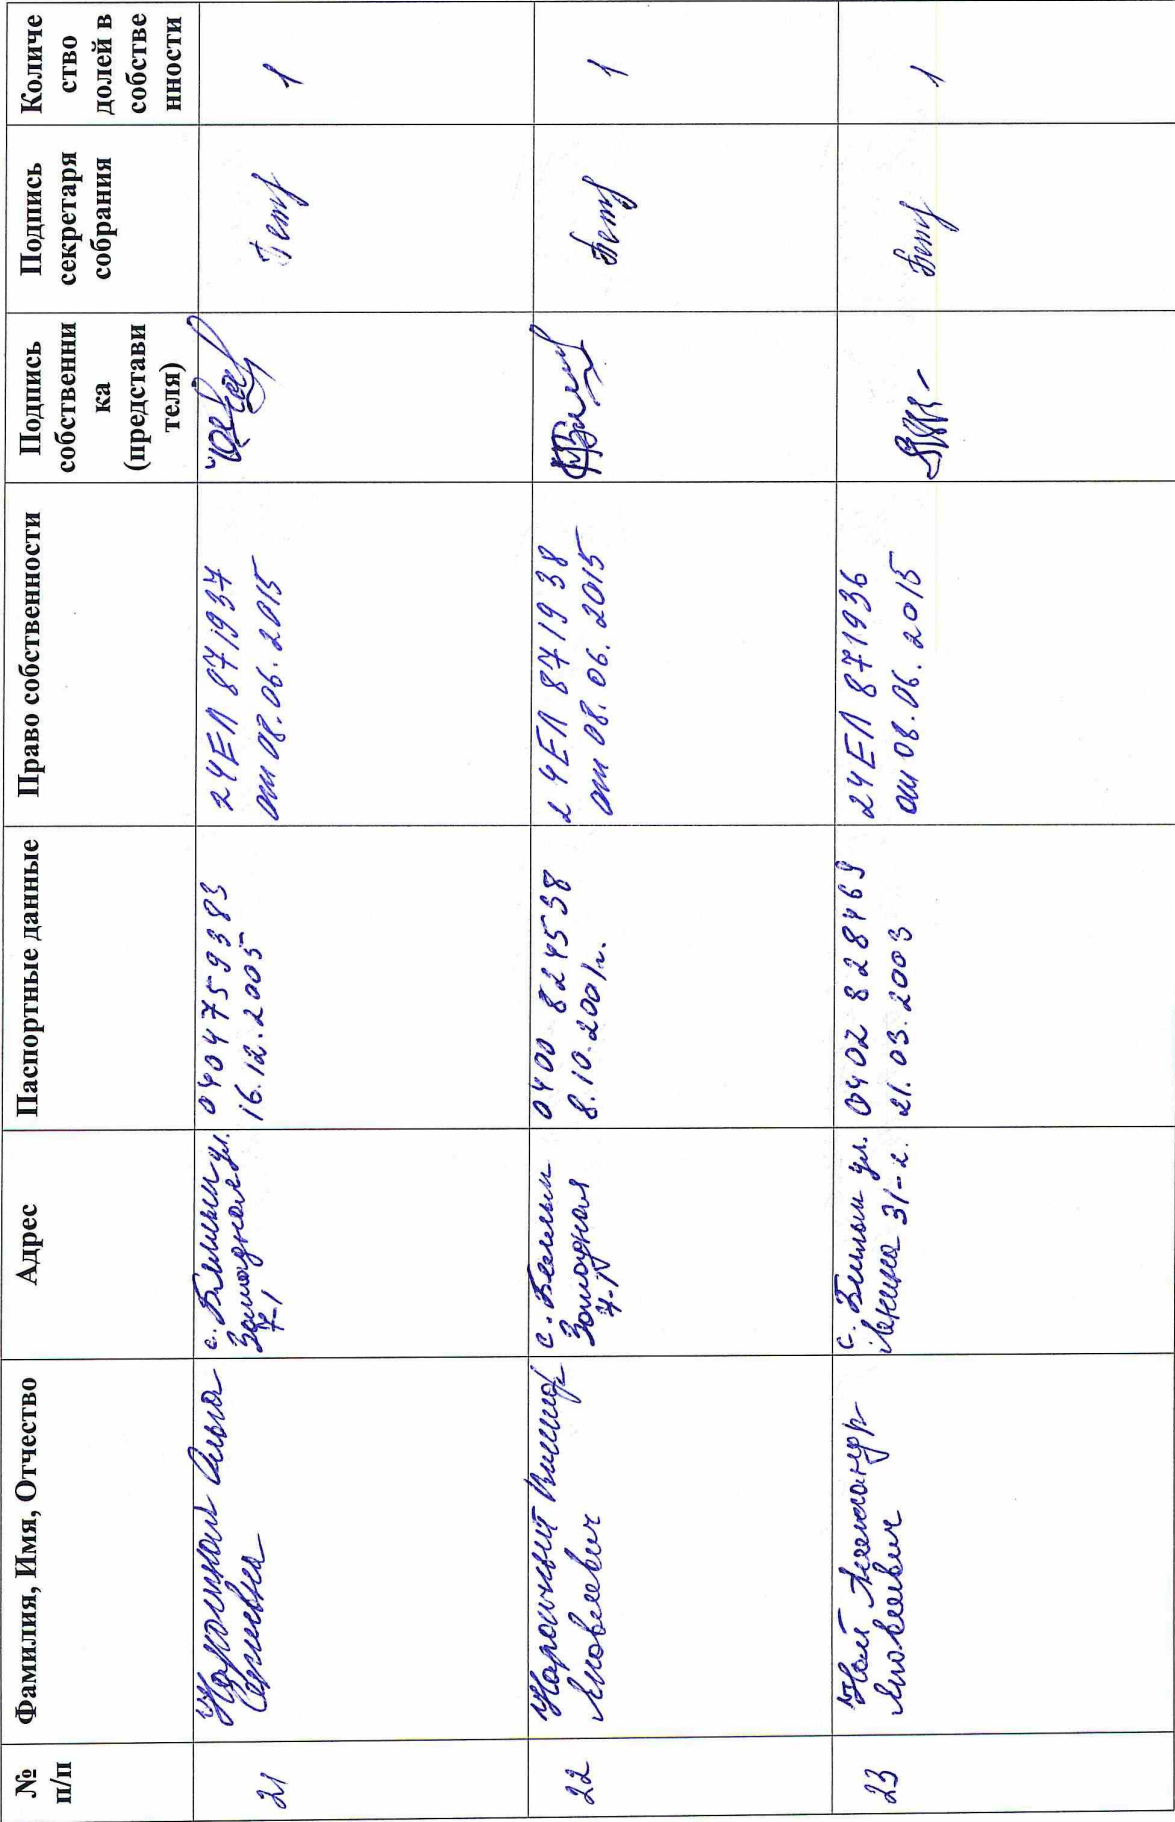 № п/п
Фамилия, Имя, Отчество
Адрес
Паспортные данные
Право собственности
Подпись собственни ка (представи теля)
Подпись секретаря собрания
Количе ство долей в собстве нности
21
Ольга
Сергеевна
с. ул.
Западная
7-1
0404759383
16.12.2005
24ЕЛ 871937
от 08.06.2015
1
22
Яковлевич
с.
Западная
7-1
0400 824538
8.10.2001г.
24ЕЛ 871938
от 08.06.2015
1
23
Александр
Яковлевич
с. ул.
31-2.
0402 828469
21.03.2003
24ЕЛ 871936
от 08.06.2015
1